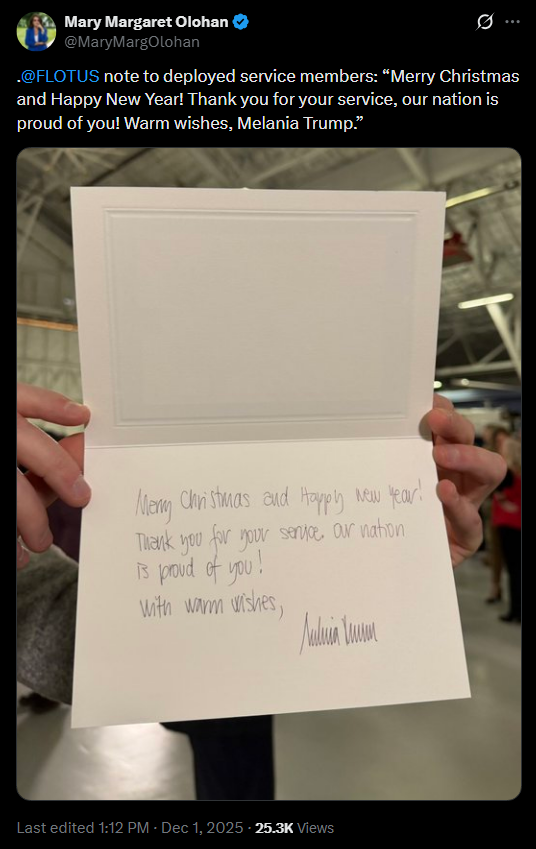 Mary Margaret Olohan
@MaryMargOlohan
.@FLOTUS note to deployed service members: “Merry Christmas
and Happy New Year! Thank you for your service, our nation is
proud of you! Warm wishes, Melania Trump.”
Merry Christmas and Happy New Year!
Thank you for your service. Our nation
is proud of you!
With warm wishes,
Melania Trump
Last edited 1:12 PM · Dec 1, 2025 · 25.3K Views